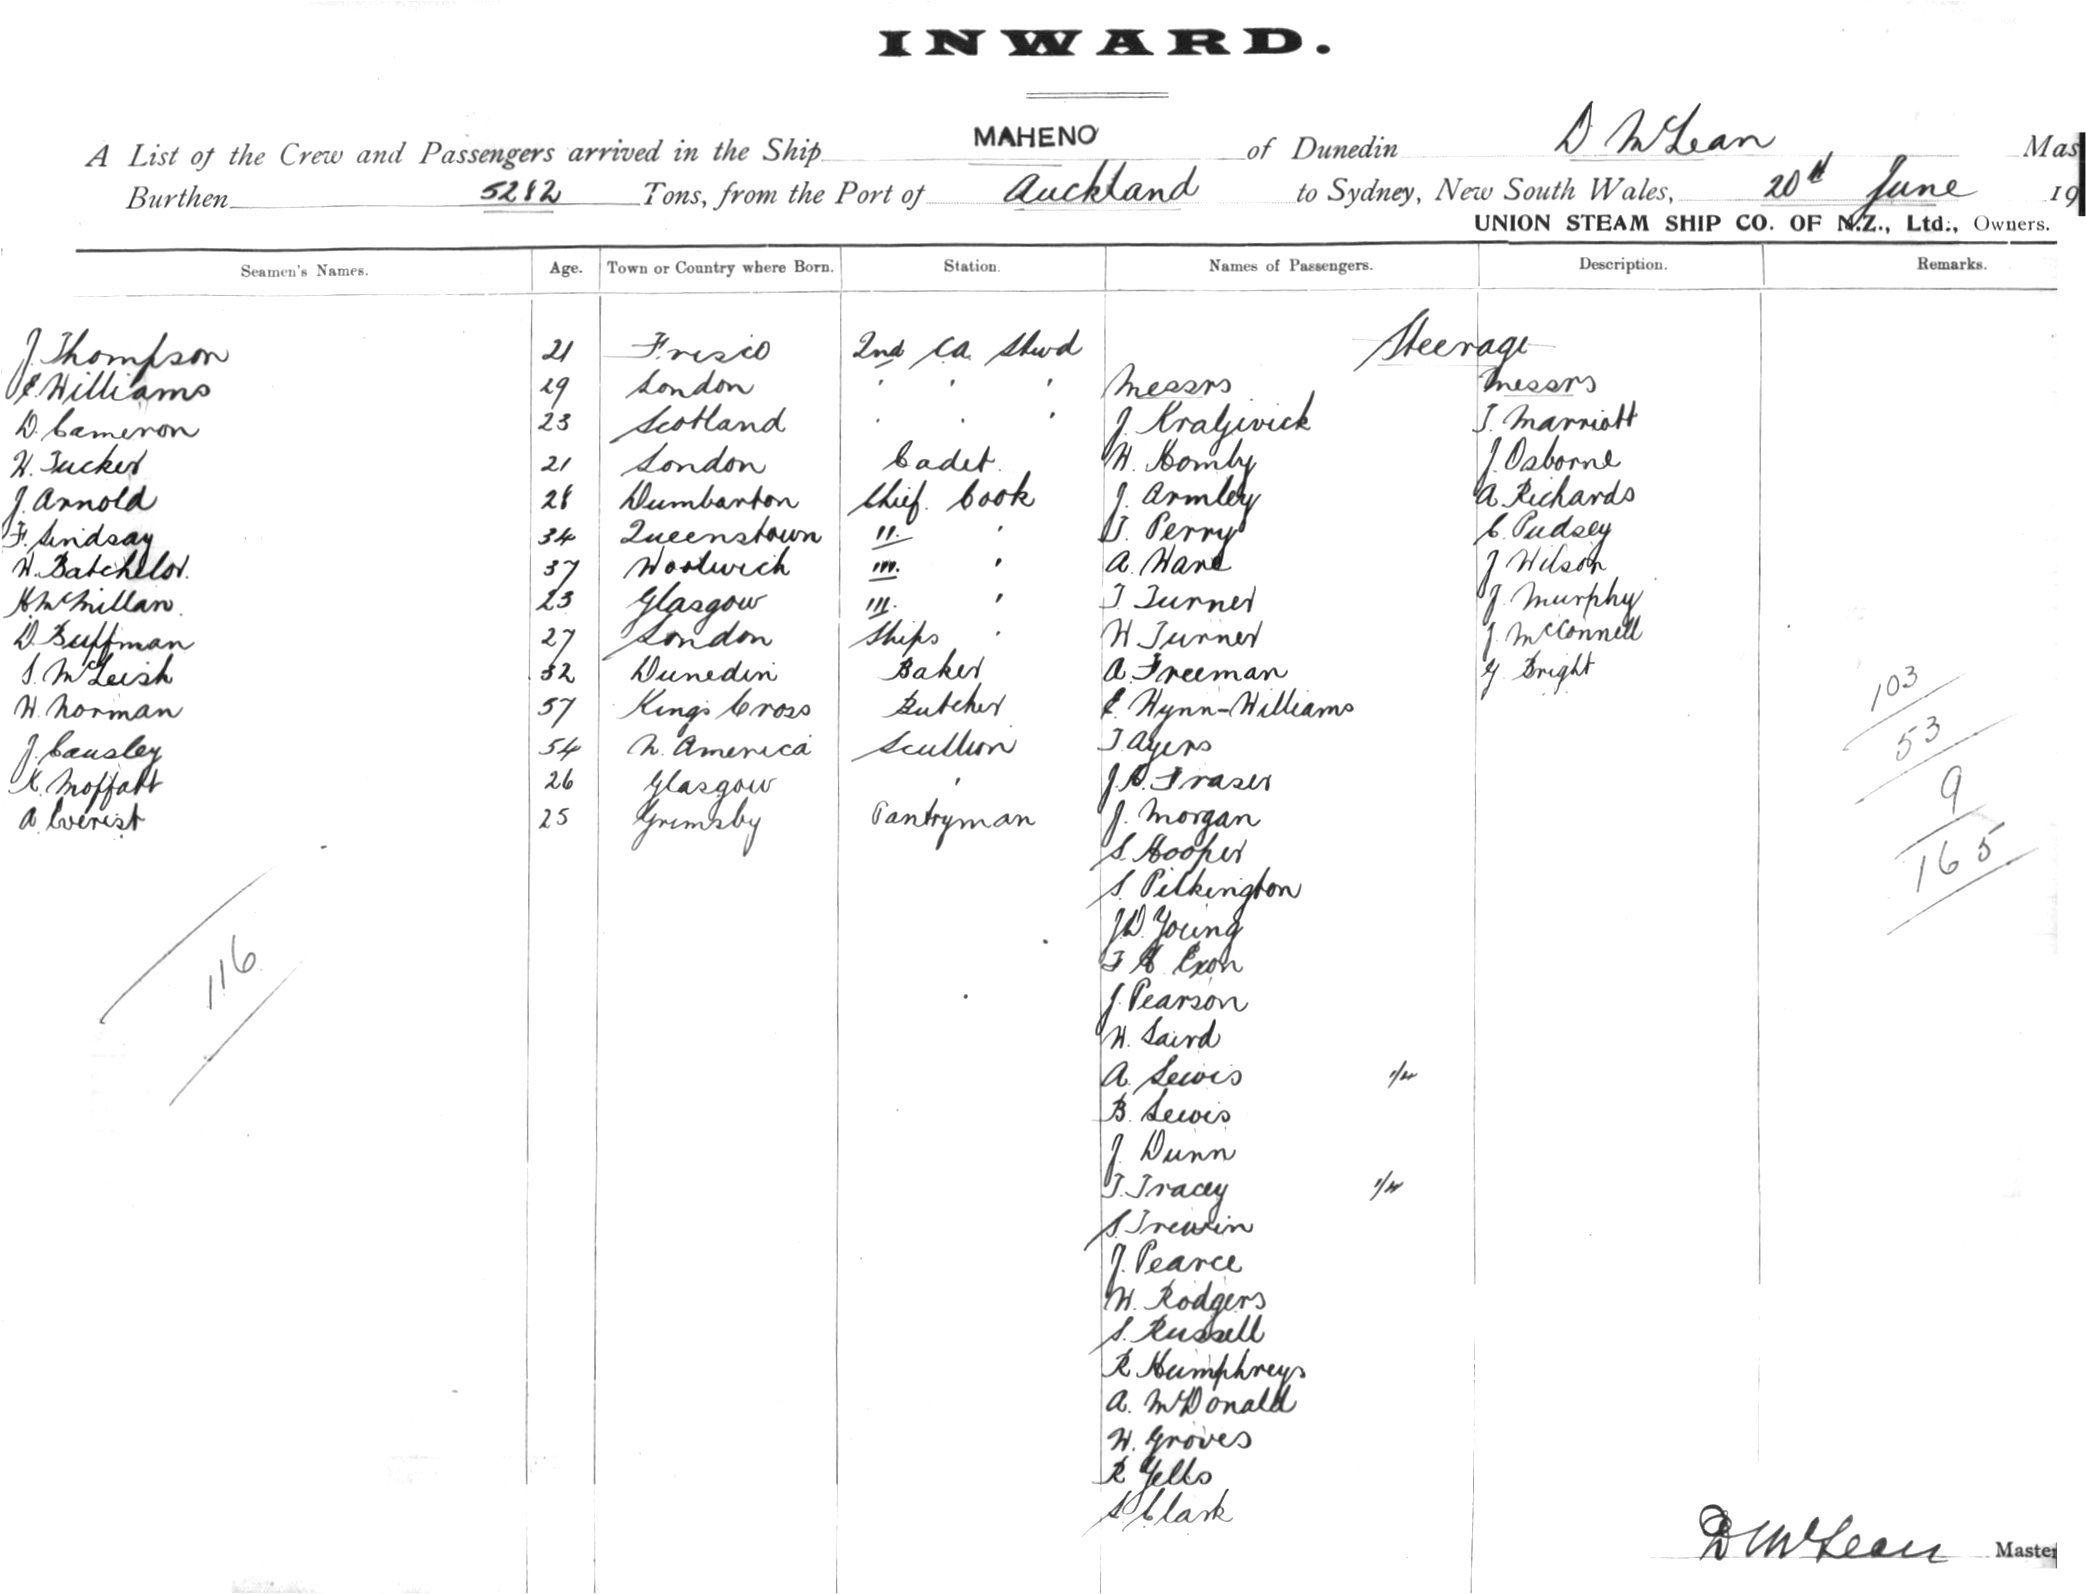 INWARD.
A List of the Crew and Passengers arrived in the Ship MAHENO of Dunedin D McLean Mas
Burthen 5282 Tons, from the Port of Auckland to Sydney, New South Wales, 20th June 19
UNION STEAM SHIP CO. OF N.Z., Ltd., Owners.
Seamen's Names. Age. Town or Country where Born. Station. Names of Passengers. Description. Remarks.
J. Thompson 21 Frisco 2nd Ca. Stwd Steerage
E. Williams 29 London ' ' ' Messrs Messrs
D. Cameron 23 Scotland ' ' ' J. Kraljivick T. Marriott
W. Tucker 21 London Cadet. W. Homby J. Osborne
J. Arnold 28 Dumbarton Chief. Cook J. Armley A. Richards
F. Lindsay 34 Queenstown II. ' T. Perry C. Pudsey
W. Batchelor. 37 Woolwich ' A. Ware J Wilson
H. McMillan. 23 Glasgow III. ' T. Turner J. Murphy
D. Buffman 27 London Ships ' W. Turner J. McConnell
S. McLeish 32 Dunedin Baker A. Freeman G. Bright
W. Norman 57 Kings Cross Butcher E. Wynn-Williams 103
J. Causley 54 N. America Scullion T. Ayers 53
K. Moffatt 26 Glasgow ' J. C. Fraser 9
A. Everist 25 Grimsby Pantryman J. Morgan
S. Hooper 165
S. Pilkington
J. D. Young
116 F H. Exon
J. Pearson
W. Laird
A. Lewis
B. Lewis
J. Dunn
T. Tracey
S. Trewin
J. Pearce
W. Rodgers
S. Russell
R. Humphreys
A. McDonald
W. Groves
R. Yells
S. Clark
D McLean Master